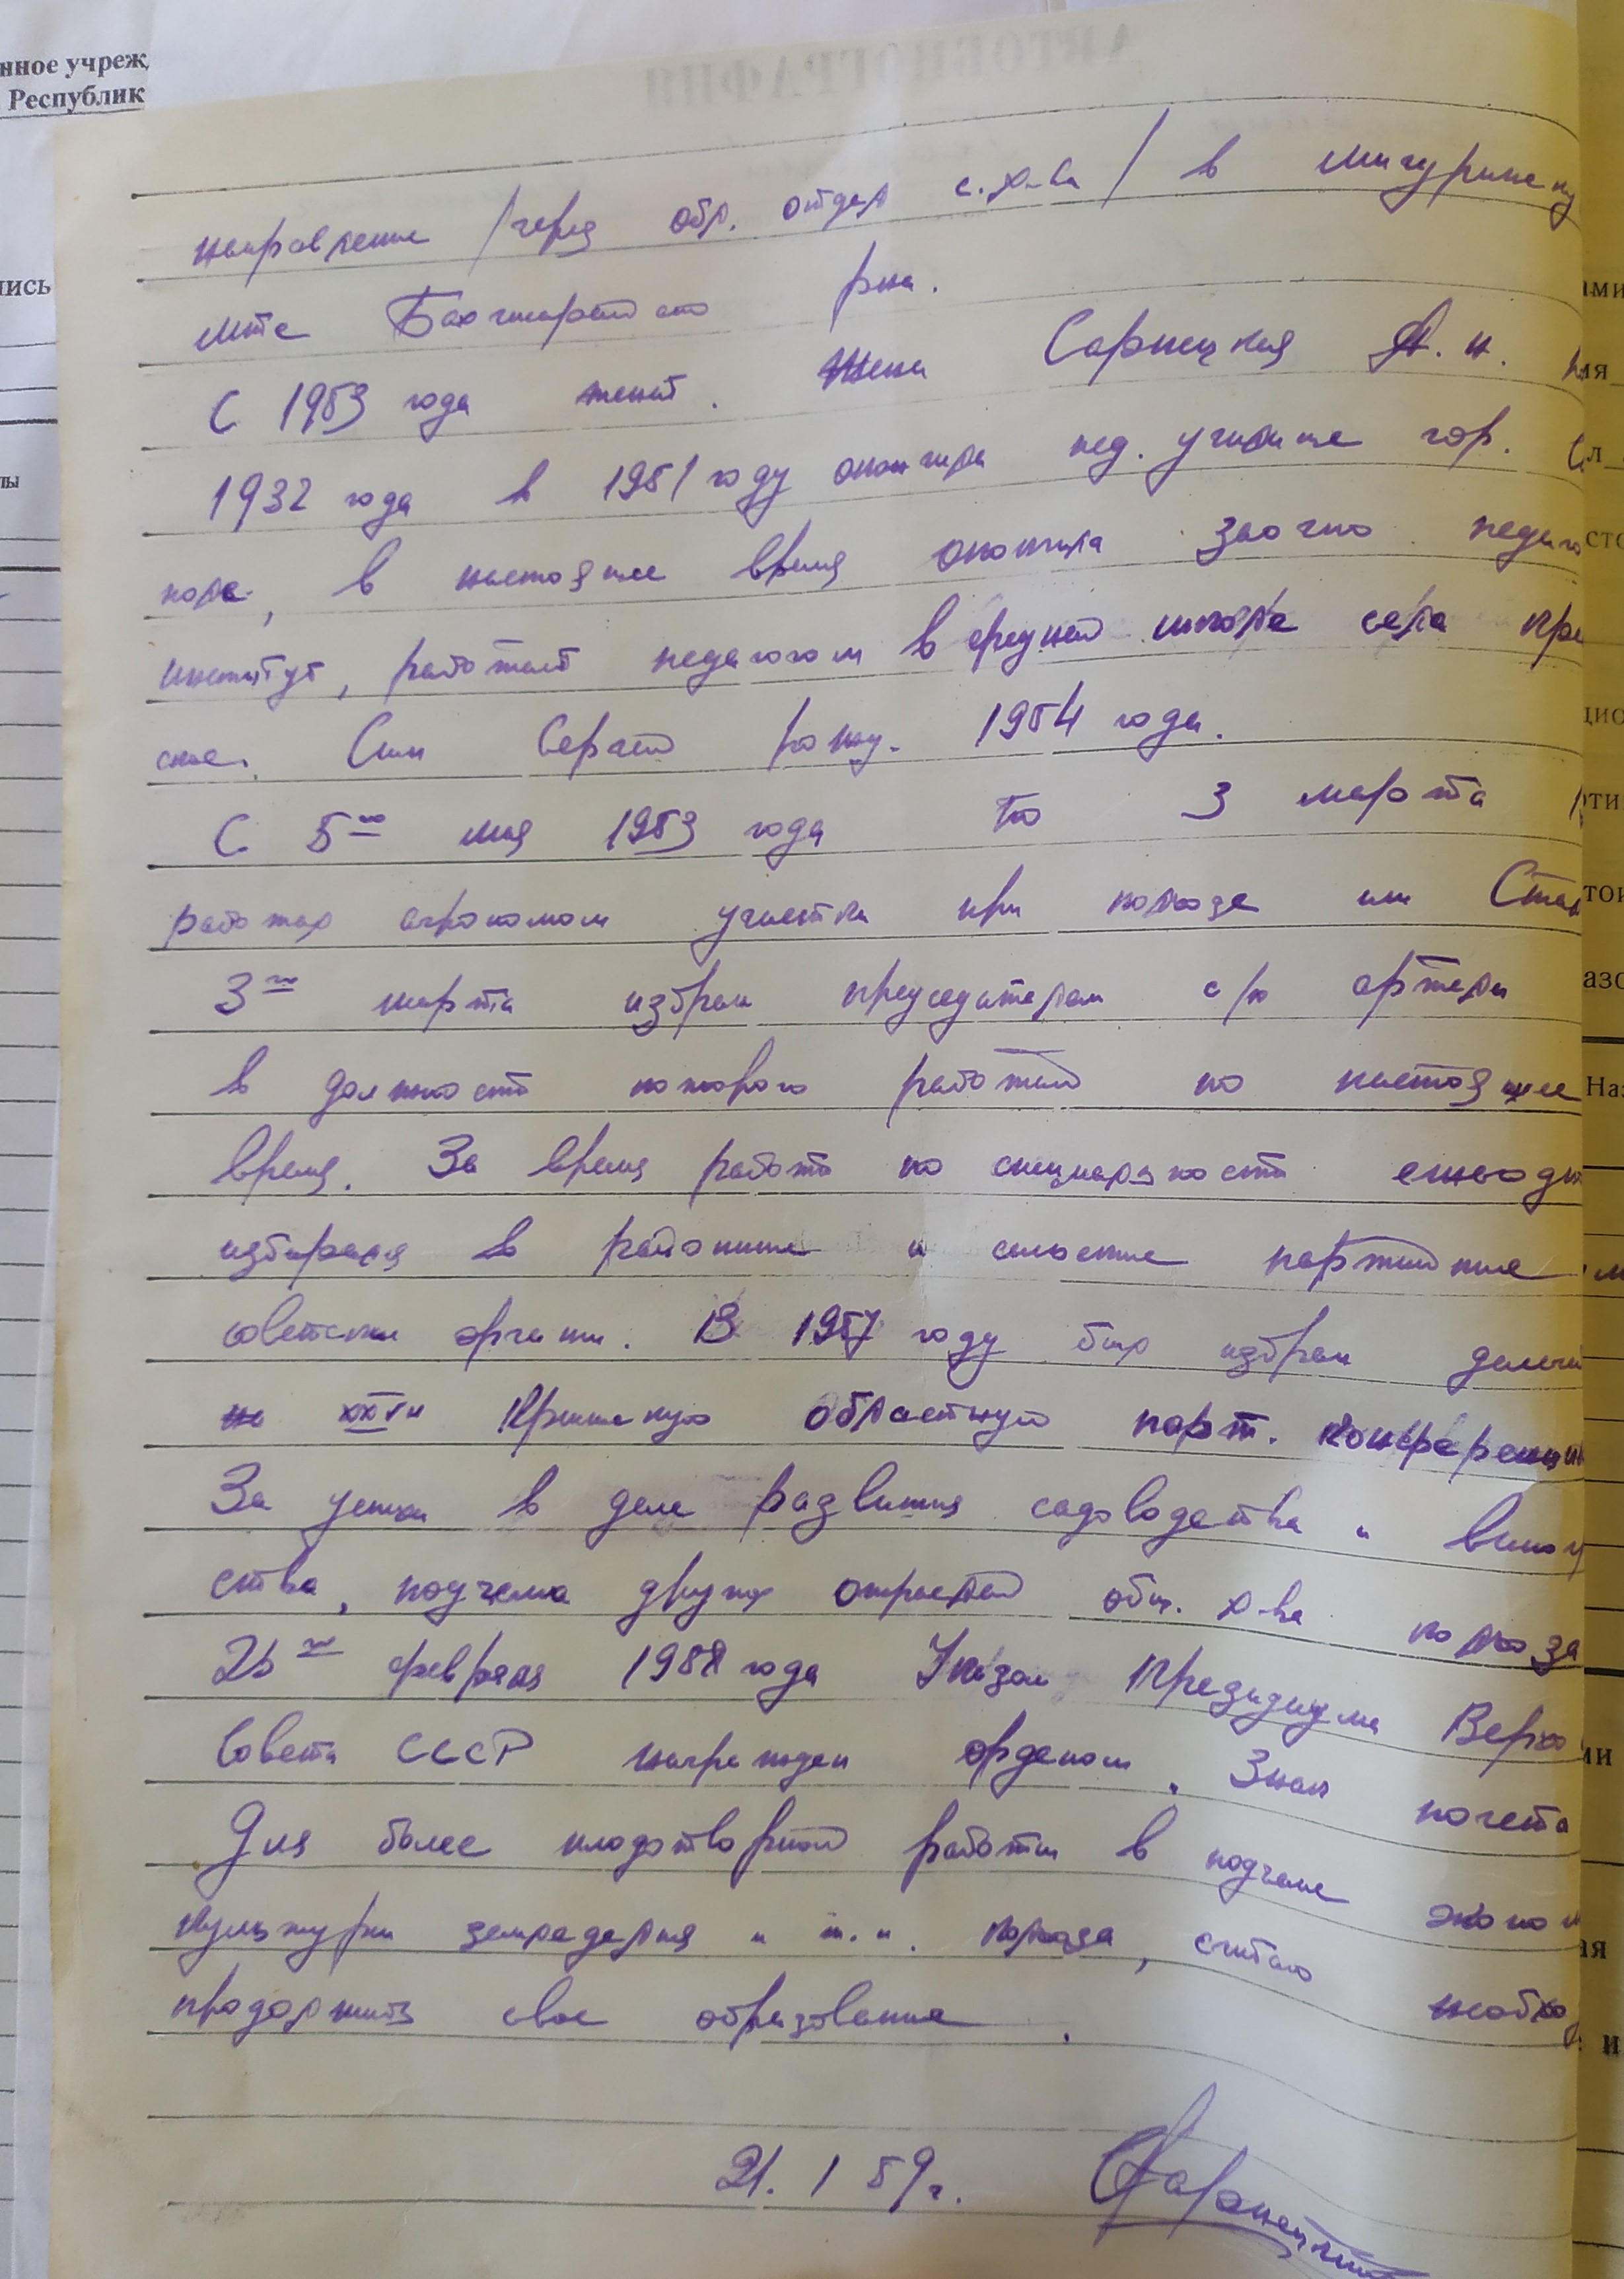 нное учреж
Республик
АВТОБИОГРАФИЯ
направление /через обл. отдел с.х-ва/ в Мичуринску
мтс Бахчисарайского р-на.
С 1953 года женат. Жена Сарницкая А. н.
1932 года в 1951 году окончила пед. училище гор.
поле, в настоящее время окончила заочно педаго
институт, работает педагогом в средней школе села
ское. Сын Сергей рожд. 1954 года.
С 5го мая 1953 года по 3 марта
работал агрономом участка при колхозе им Стал
3го марта избран председателем с/х артели
в должности которого работаю по настоящее
время. За время работы по специальности ежегодн
избирался в районные и сельские партийные
советские органы. В 1957 году был избран делега
на XXVII Крымскую областную парт. конференци
За успехи в деле развития садоводства и виног
ства, подъема других отраслей общ. х-ва колхоза
26го февраля 1958 года Указом Президиума Верхо
Совета СССР награжден орденом „Знак почета
Для более плодотворной работы в подъеме эконом
культуры земледелия и т.п. колхоза, считаю необход
продолжить свое образование.
21. 1 59 г.
ись
лы
ами
ия
л
сто
цио
тои
азо
Наз
ми
ая